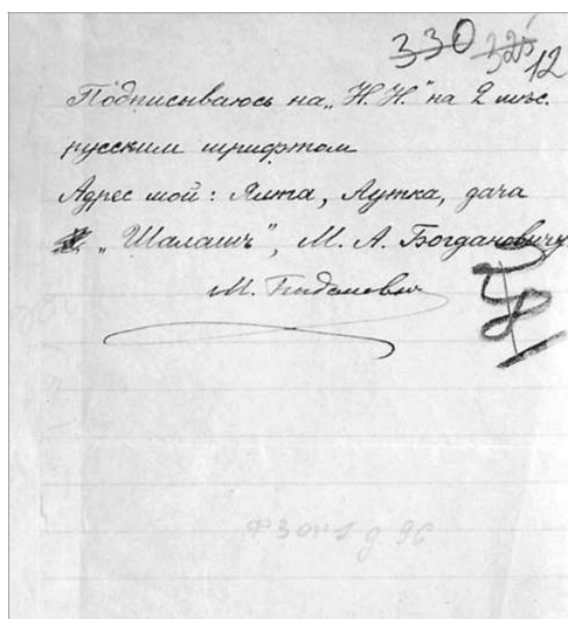 330 325 12
Подписываюсь на „Н. Н.“ на 2 мѣс.
русским шрифтом
Адрес мой: Ялта, Аутка, дача
„Шалашъ“, М. А. Богдановичу
М. Богданович